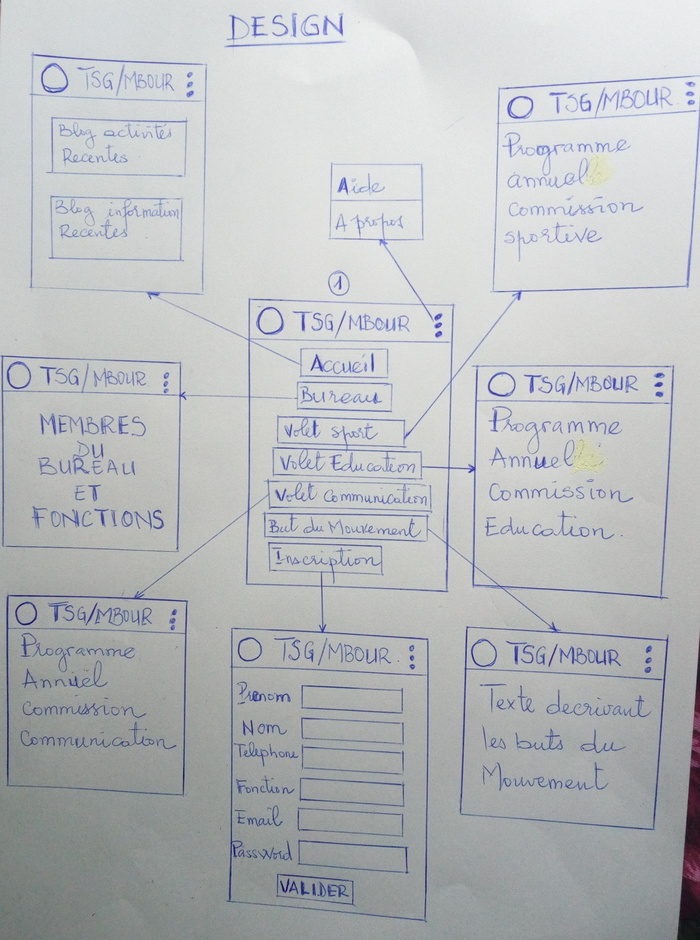 DESIGN
TSG/MBOUR
Blog activités
Recentes
Blog information
Recentes
TSG/MBOUR
Programme
annuel
commission
sportive
Aide
A propos
1
TSG/MBOUR
Accueil
Bureau
Volet Sport
Volet Education
Volet Communication
But du Mouvement
Inscription
TSG/MBOUR
MEMBRES
DU
BUREAU
ET
FONCTIONS
TSG/MBOUR
Programme
Annuel
Commission
Education.
TSG/MBOUR
Programme
Annuel
Commission
Communication
TSG/MBOUR.
Prenom
Nom
Telephone
Fonction
Email
Password
VALIDER
TSG/MBOUR
Texte decrivant
les buts du
Mouvement